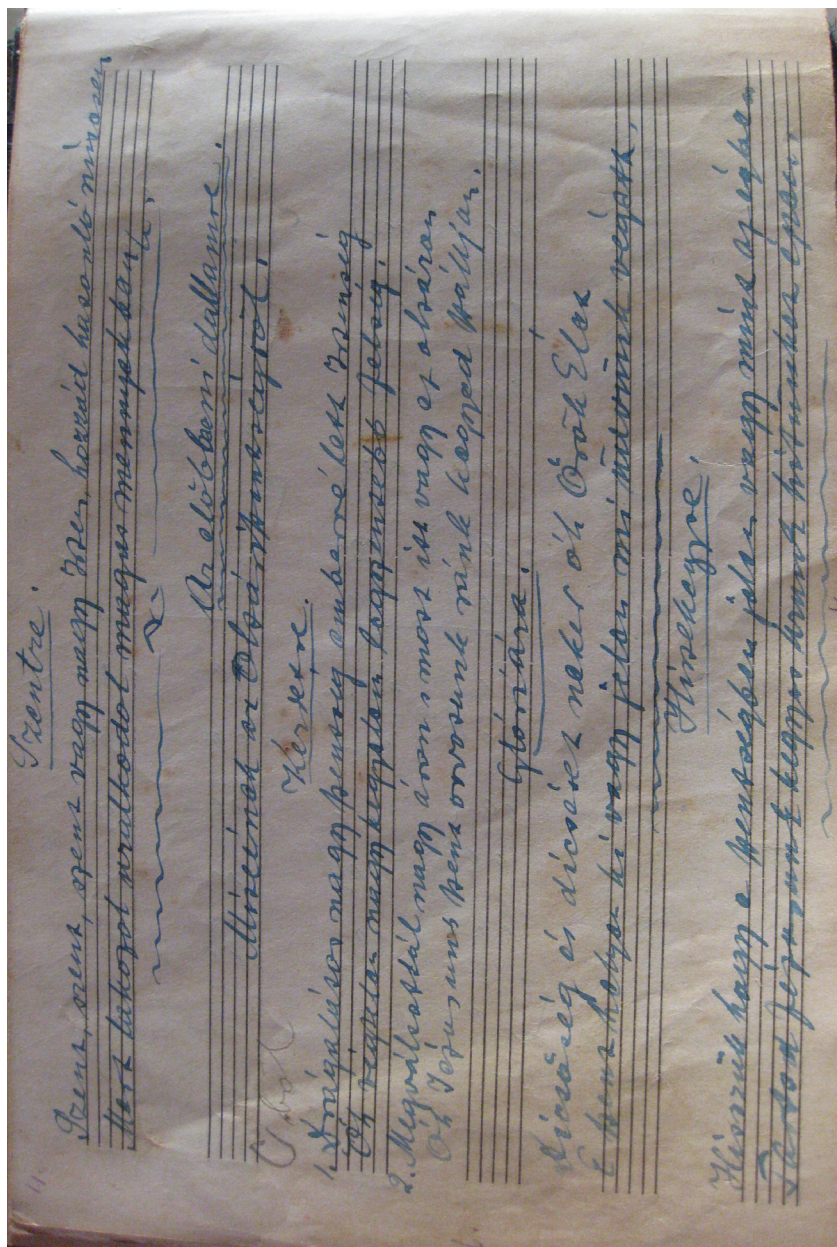 11.
Szentre.
Szent, szent, szent vagy nagy Isten, hozzád hasonló nincsen
Mert lakozol uralkodol magas mennyekben
Az előbbeni dallamra.
Miséinek az Oltáriszentségről.
C ból
Kezdre.
1. Drágalátos nagy szentség emberré lett Istenség
Óh végtelen nagy kegyelem legszentebb felség.
2. Megváltottál nagy áron s most itt vagy ez oltáron
Óh Jézusunk szent orvosunk ránk kegyed szálljon.
Glóriára.
Dicsőség és dicséret neked óh Örök Élet
E szent helyen ki vagy jelen mi üdvünk végett,
Hiszekegyre.
Hisszük hogy e szentségben jelen vagy mint az égben
Tartsd Jézusunk kegyes Urunk hitünket épen,